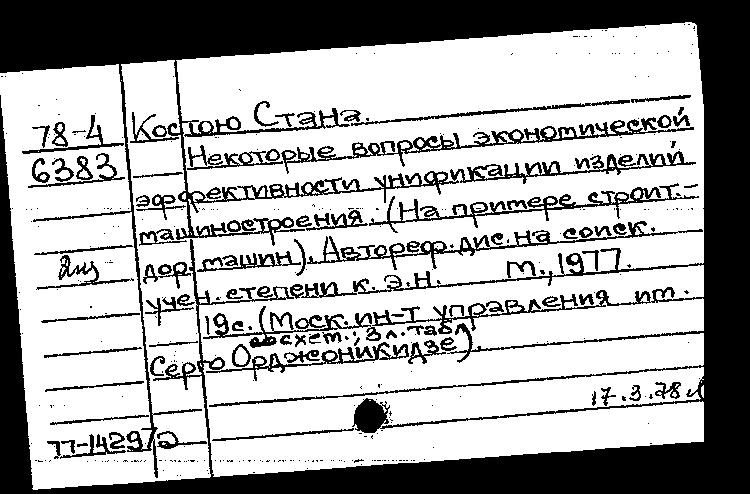 78-4 Костою Стана.
6383 Некоторые вопросы экономической
эффективности унификации изделий
машиностроения. (На примере строит.-
дор. машин). Автореф. дис. на соиск.
учен. степени к. э. н. М., 1977.
19с. (Моск. ин-т управления им.
схем.; 3 л. табл
Серго Орджоникидзе).
17.3.78
77-14297